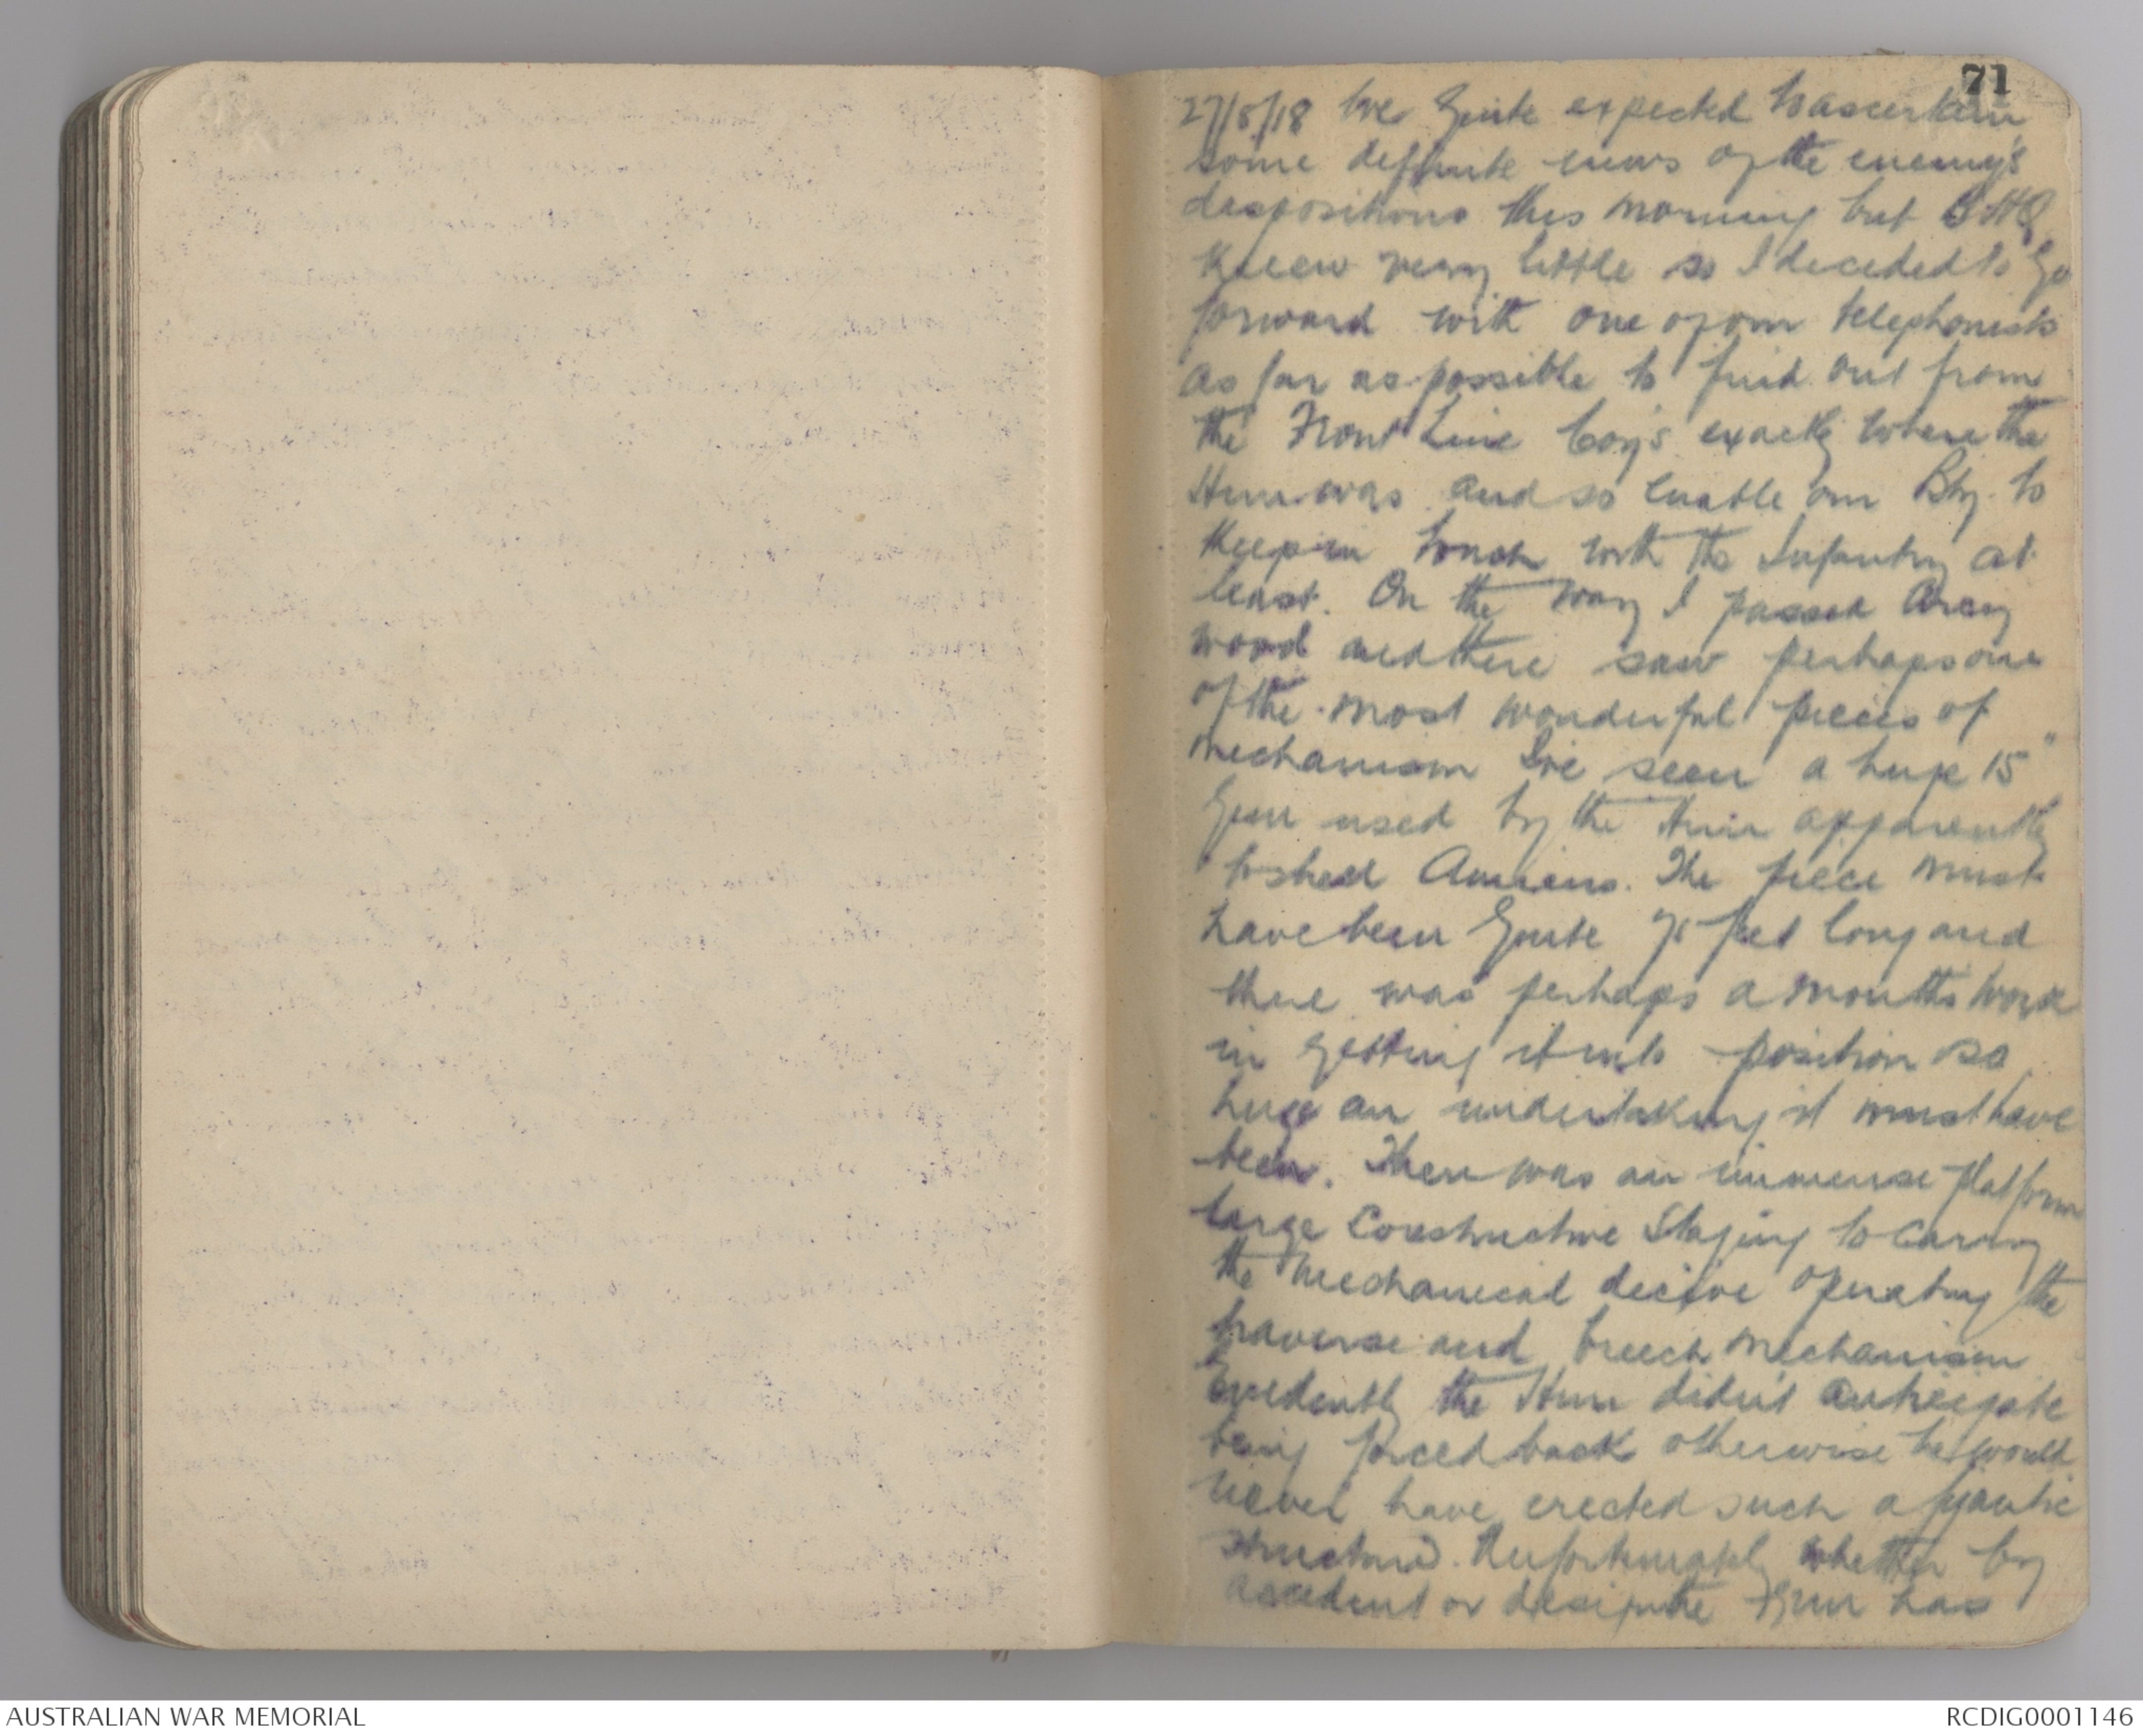 71
27/8/18 We quite expected to ascertain
some definite news of the enemy's
dispositions this morning but BHQ
knew very little so I decided to go
forward with one of our telephonists
as far as possible to find out from
the Front Line Coy's exactly where the
Hun was and so enable our Bty. to
keep in touch with the Infantry at
least. On the way I passed Arcy
wood and there saw perhaps one
of the most wonderful pieces of
mechanism I've seen a huge 15"
Gun used by the Hun apparently
to shell Amiens. The piece must
have been quite feet long and
there was perhaps a months work
in getting it into position so
huge an undertaking it must have
been. There was an immense platform
large Constructive Staging to carry
the mechanical device operating the
traverse and breech mechanism
Evidently the Hun didn't anticipate
being forced back otherwise he would
never have erected such a
structure. Unfortunately whether by
accident or design the gun has
AUSTRALIAN WAR MEMORIAL
RCDIG0001146